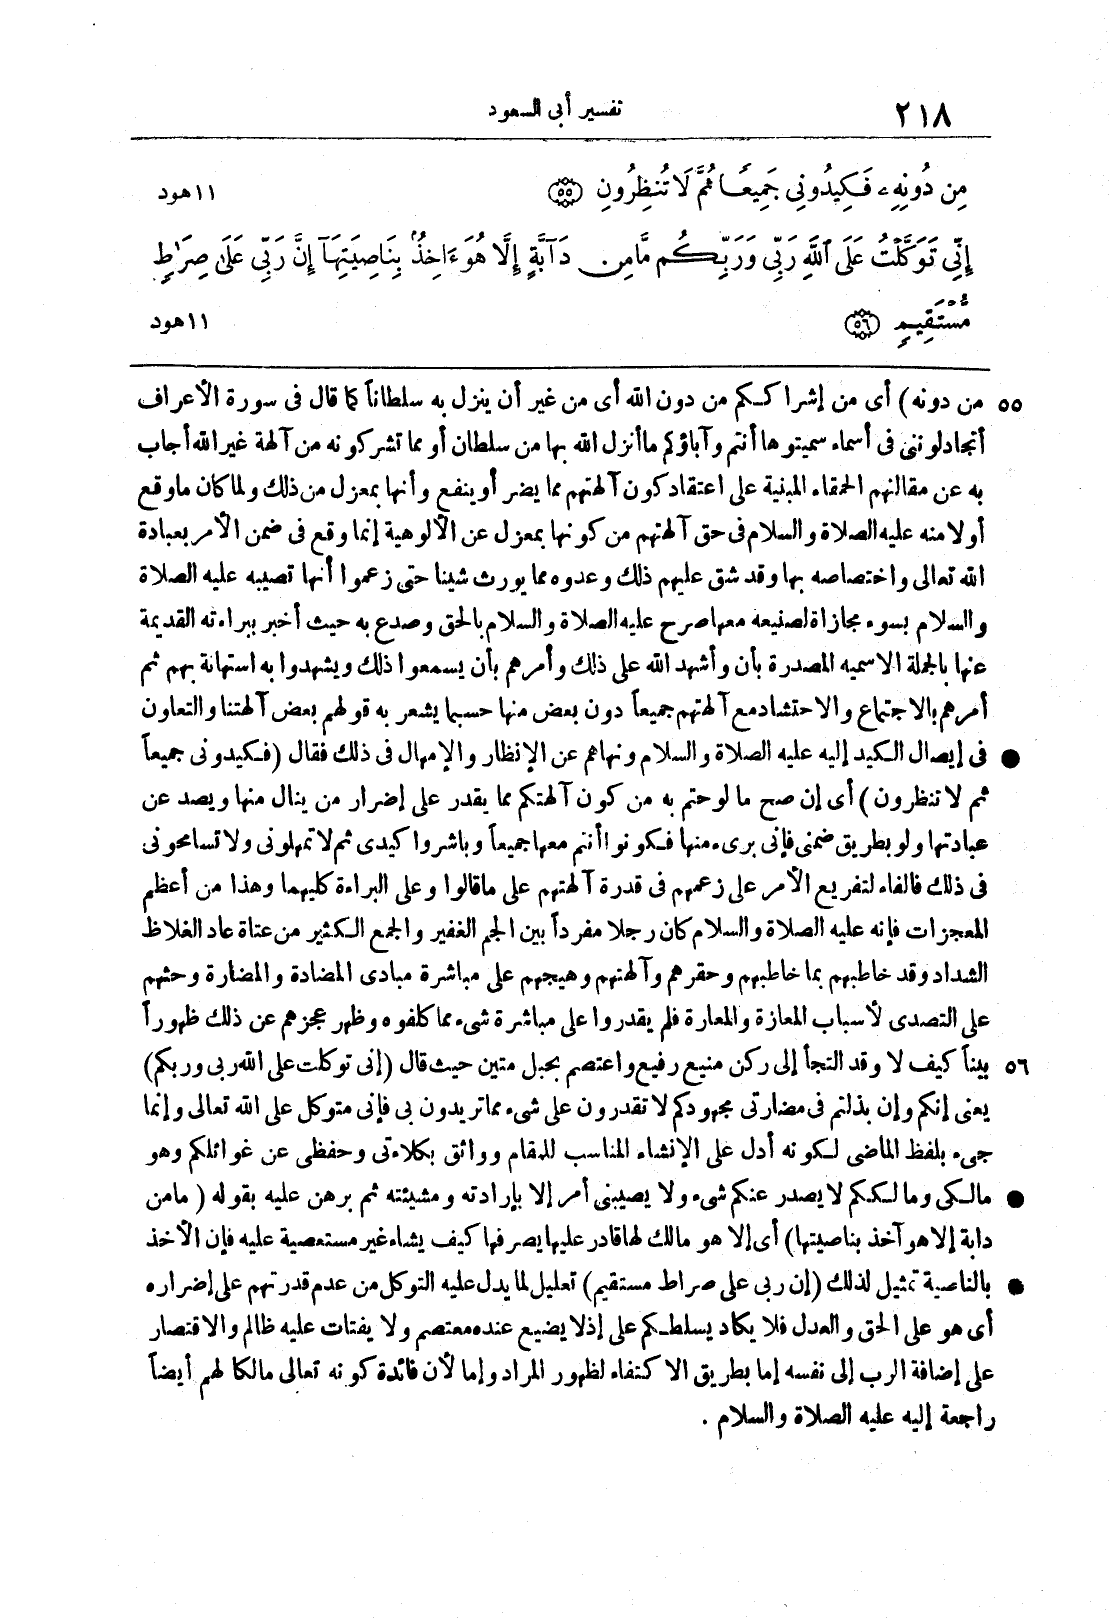 ٢١٨
تفسير أبى السعود
مِن دُونِهِۦ فَكِيدُونِى جَمِيعًا ثُمَّ لَا تُنظِرُونِ ۝٥٥
١١ هود
إِنِّى تَوَكَّلْتُ عَلَى ٱللَّهِ رَبِّى وَرَبِّكُم مَّا مِن دَآبَّةٍ إِلَّا هُوَ ءَاخِذٌۢ بِنَاصِيَتِهَآ إِنَّ رَبِّى عَلَىٰ صِرَٰطٍ
مُّسْتَقِيمٍ ۝٥٦
١١ هود
٥٥ من دونه) أى من إشراككم من دون الله أى من غير أن ينزل به سلطاناً كما قال فى سورة الأعراف
أتجادلوننى فى أسماء سميتوها أنتم وآباؤكم ما أنزل الله بها من سلطان أو مما تشركونه من آلهة غير الله أجاب
به عن مقالتهم الحمقاء المبنية على اعتقاد كون آلهتهم مما يضر أو ينفع وأنها بمعزل من ذلك ولما كان ما وقع
أولا منه عليه الصلاة والسلام فى حق آلهتهم من كونها بمعزل عن الألوهية إنما وقع فى ضمن الأمر بعبادة
الله تعالى واختصاصه بها وقد شق عليهم ذلك وعدوه مما يورث شينا حتى زعموا أنها تصيبه عليه الصلاة
والسلام بسوء مجازاة لصنيعه معها صرح عليه الصلاة والسلام بالحق وصدع به حيث أخبر ببراءته القديمة
عنها بالجملة الاسميه المصدرة بأن وأشهد الله على ذلك وأمرهم بأن يسمعوا ذلك ويشهدوا به استهانة بهم ثم
أمرهم بالاجتماع والاحتشاد مع آلهتهم جميعاً دون بعض منها حسبما يشعر به قولهم بعض آلهتنا والتعاون
● فى إيصال الكيد إليه عليه الصلاة والسلام ونهاهم عن الإنظار والإمهال فى ذلك فقال (فكيدونى جميعاً
ثم لا تنظرون) أى إن صح ما لوحتم به من كون آلهتكم مما يقدر على إضرار من ينال منها ويصد عن
عبادتها ولو بطريق ضمنى فإنى برىء منها فكونوا أنتم معها جميعاً وباشروا كيدى ثم لا تمهلونى ولا تسامحونى
فى ذلك فالفاء لتفريع الأمر على زعمهم فى قدرة آلهتهم على ما قالوا وعلى البراءة كليهما وهذا من أعظم
المعجزات فإنه عليه الصلاة والسلام كان رجلا مفرداً بين الجم الغفير والجمع الكثير من عتاة عاد الغلاظ
الشداد وقد خاطبهم بما خاطبهم وحقرهم وآلهتهم وهيجهم على مباشرة مبادى المضادة والمضارة وحثهم
على التصدى لأسباب المعازة والمعارة فلم يقدروا على مباشرة شىء مما كلفوه وظهر عجزهم عن ذلك ظهوراً
٥٦ بيناً كيف لا وقد التجأ إلى ركن منيع رفيع واعتصم بحبل متين حيث قال (إنى توكلت على الله ربى وربكم)
يعنى إنكم وإن بذلتم فى مضارتى مجهودكم لا تقدرون على شىء مما تريدون بى فإنى متوكل على الله تعالى وإنما
جىء بلفظ الماضى لكونه أدل على الإنشاء المناسب للمقام وواثق بكلاءتى وحفظى عن غوائلكم وهو
● مالكى ومالككم لا يصدر عنكم شىء ولا يصيبنى أمر إلا بإرادته ومشيئته ثم برهن عليه بقوله ( ما من
دابة إلا هو آخذ بناصيتها) أى إلا هو مالك لها قادر عليها يصرفها كيف يشاء غير مستعصية عليه فإن الأخذ
● بالناصية تمثيل لذلك (إن ربى على صراط مستقيم) تعليل لما يدل عليه التوكل من عدم قدرتهم على إضراره
أى هو على الحق والعدل فلا يكاد يسلطكم على إذ لا يضيع عنده معتصم ولا يفتات عليه ظالم والاقتصار
على إضافة الرب إلى نفسه إما بطريق الاكتفاء لظهور المراد وإما لأن فائدة كونه تعالى مالكا لهم أيضاً
راجعة إليه عليه الصلاة والسلام .